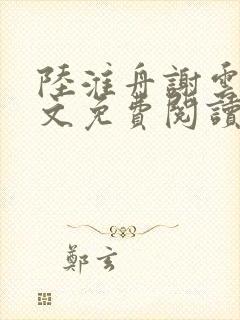 陸淮舟謝雲
文免費閱讀
鄭玄